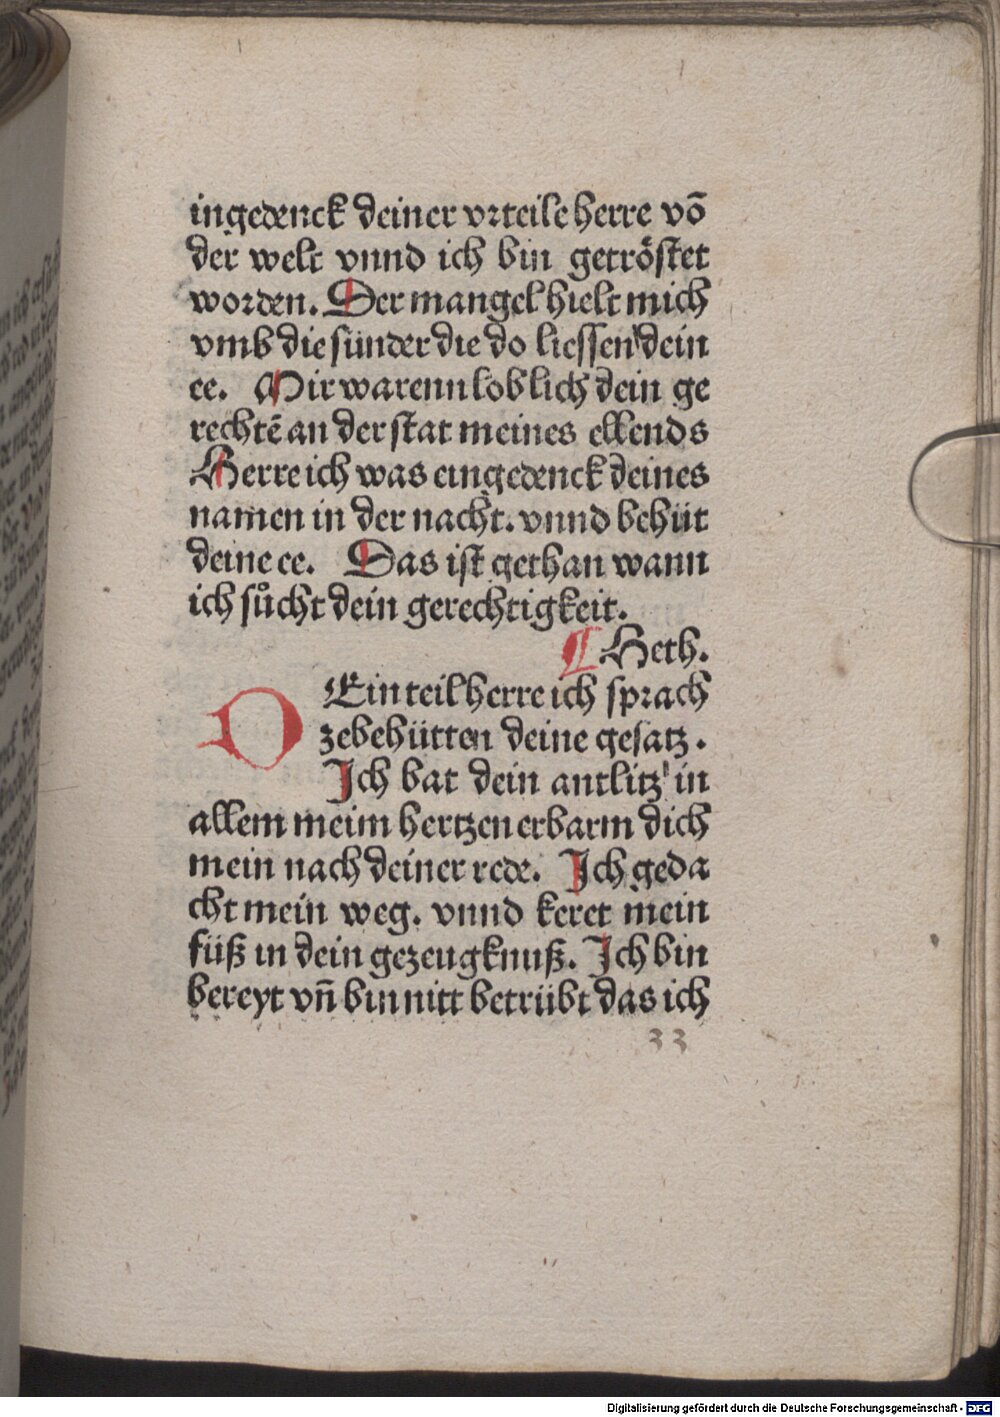 ingedenck deiner vrteile herre võ
der welt vnnd ich bin getröstet
worden. Der mangel hielt mich
vmb die sünder die do liessen dein
ee. Mir warenn loblich dein ge
rechtē an der stat meines ellends
Herre ich was eingedenck deines
namen in der nacht. vnnd behüt
deine ee. Das ist gethan wann
ich sůcht dein gerechtigkeit.
¶ Heth.
O Ein teil herre ich sprach
zebehütten deine gesatz.
Ich bat dein antlitz in
allem meim hertzen erbarm dich
mein nach deiner rede. Ich geda
cht mein weg. vnnd keret mein
füß in dein gezeugknuß. Ich bin
bereyt vñ bin nitt betrübt das ich
33
Digitalisierung gefördert durch die Deutsche Forschungsgemeinschaft - DFG